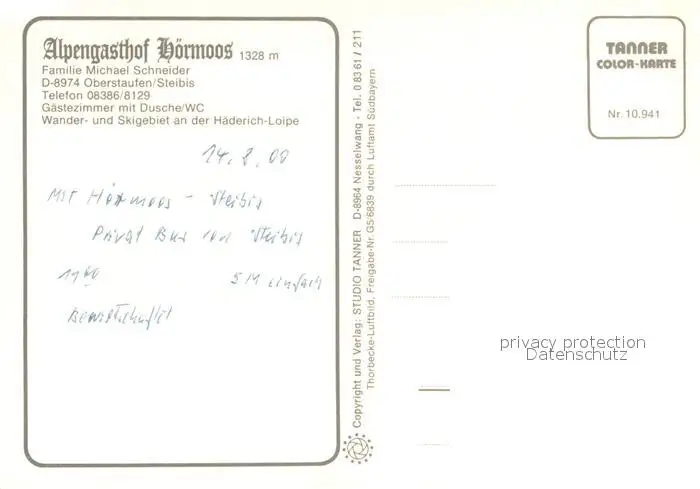 Alpengasthof Hörmoos 1328 m
Familie Michael Schneider
D-8974 Oberstaufen/Steibis
Telefon 08386/8129
Gästezimmer mit Dusche/WC
Wander- und Skigebiet an der Häderich-Loipe
14.8.00
Mst Hörmoos - Steibis
Privat Bus von Steibis
11 00 5 M einfach
Bewirtschaftet
Copyright und Verlag: STUDIO TANNER D-8964 Nesselwang · Tel. 08361/211
Thorbecke-Luftbild, Freigabe-Nr. G5/6839 durch Luftamt Südbayern
TANNER
COLOR-KARTE
Nr. 10.941
privacy protection
Datenschutz